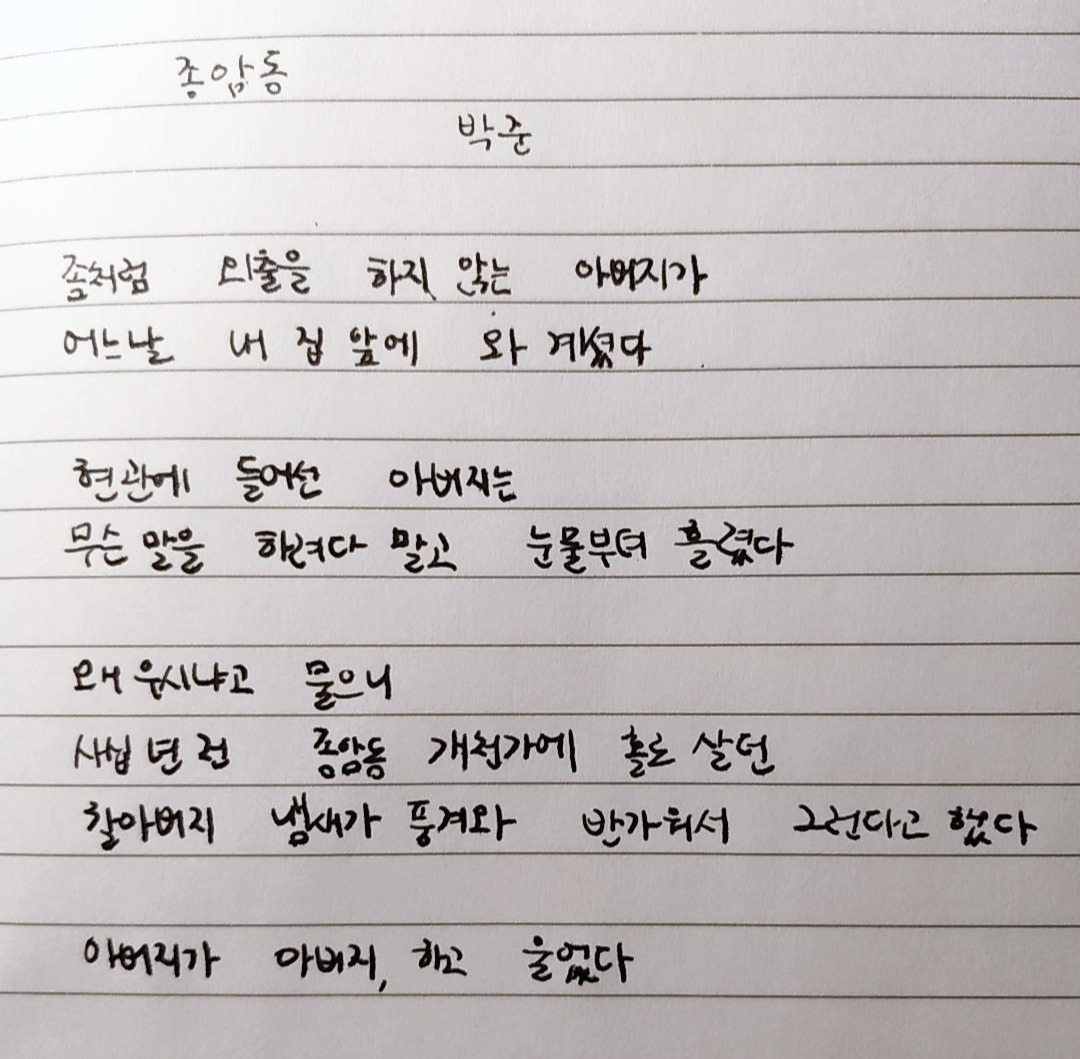 종암동
박준
좀처럼 외출을 하지 않는 아버지가
어느날 내 집 앞에 와 계셨다
현관에 들어선 아버지는
무슨 말을 하려다 말고 눈물부터 흘렸다
왜 우시냐고 물으니
사십 년 전 종암동 개천가에 홀로 살던
할아버지 냄새가 풍겨와 반가워서 그런다고 했다
아버지가 아버지, 하고 울었다